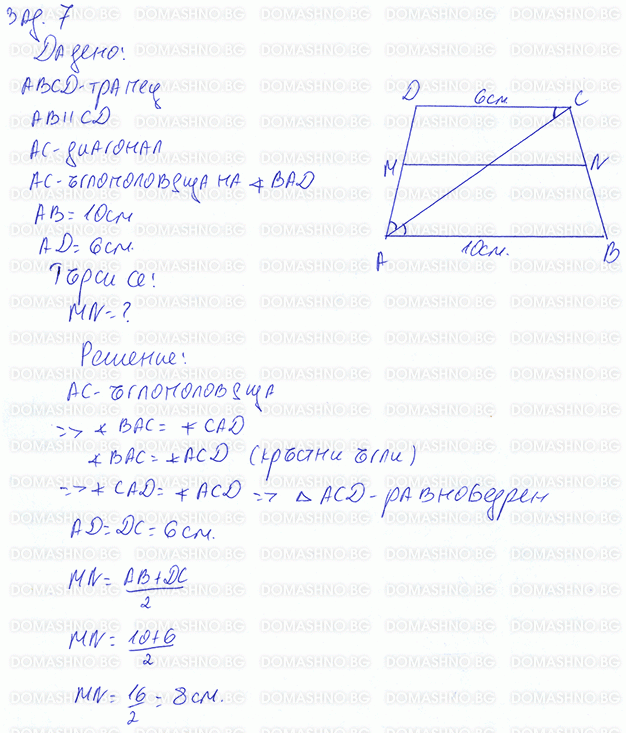 Зад. 7
Дадено:
ABCD-трапец
AB II CD
AC-диагонал
AC-ъглополовяща на ∢ BAD
AB = 10см
AD = 6см.
Търси се:
MN = ?
Решение:
AC-ъглополовяща
=> ∢ BAC = ∢ CAD
∢ BAC = ∢ ACD (кръстни ъгли)
=> ∢ CAD = ∢ ACD => △ ACD-равнобедрен
AD = DC = 6см.
MN = AB+DC / 2
MN = 10+6 / 2
MN = 16 / 2 = 8см.
D 6см C
M N
A 10см. B
DOMASHNO.BG